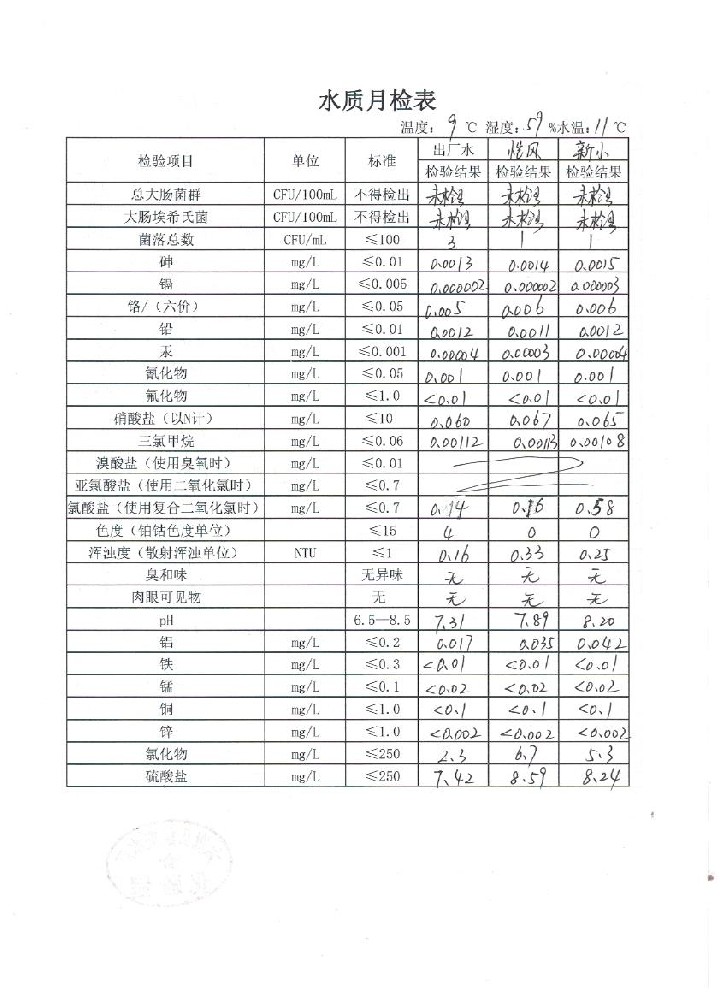 水质月检表
温度: 9 ℃ 湿度: 59 %水温: 11 ℃
检验项目 单位 标准 出厂水 风 新小
检验结果 检验结果 检验结果
总大肠菌群 CFU/100mL 不得检出 未检出 未检出 未检出
大肠埃希氏菌 CFU/100mL 不得检出 未检出 未检出 未检出
菌落总数 CFU/mL ≤100 3 1 1
砷 mg/L ≤0.01 0.0013 0.0014 0.0015
镉 mg/L ≤0.005 0.000002 0.000002 0.000003
铬/（六价） mg/L ≤0.05 0.005 0.006 0.006
铅 mg/L ≤0.01 0.0012 0.0011 0.0012
汞 mg/L ≤0.001 0.00004 0.00003 0.00004
氰化物 mg/L ≤0.05 0.001 0.001 0.001
氟化物 mg/L ≤1.0 <0.01 <0.01 <0.01
硝酸盐（以N计） mg/L ≤10 0.060 0.067 0.065
三氯甲烷 mg/L ≤0.06 0.00112 0.00113 0.00108
溴酸盐（使用臭氧时） mg/L ≤0.01
亚氯酸盐（使用二氧化氯时） mg/L ≤0.7
氯酸盐（使用复合二氧化氯时） mg/L ≤0.7 0.14 0.16 0.58
色度（铂钴色度单位） ≤15 4 0 0
浑浊度（散射浑浊单位） NTU ≤1 0.16 0.33 0.25
臭和味 无异味 无 无 无
肉眼可见物 无 无 无 无
pH 6.5—8.5 7.31 7.89 8.20
铝 mg/L ≤0.2 0.017 0.035 0.042
铁 mg/L ≤0.3 <0.01 <0.01 <0.01
锰 mg/L ≤0.1 <0.02 <0.02 <0.02
铜 mg/L ≤1.0 <0.1 <0.1 <0.1
锌 mg/L ≤1.0 <0.002 <0.002 <0.002
氯化物 mg/L ≤250 2.3 6.7 5.3
硫酸盐 mg/L ≤250 7.42 8.59 8.24